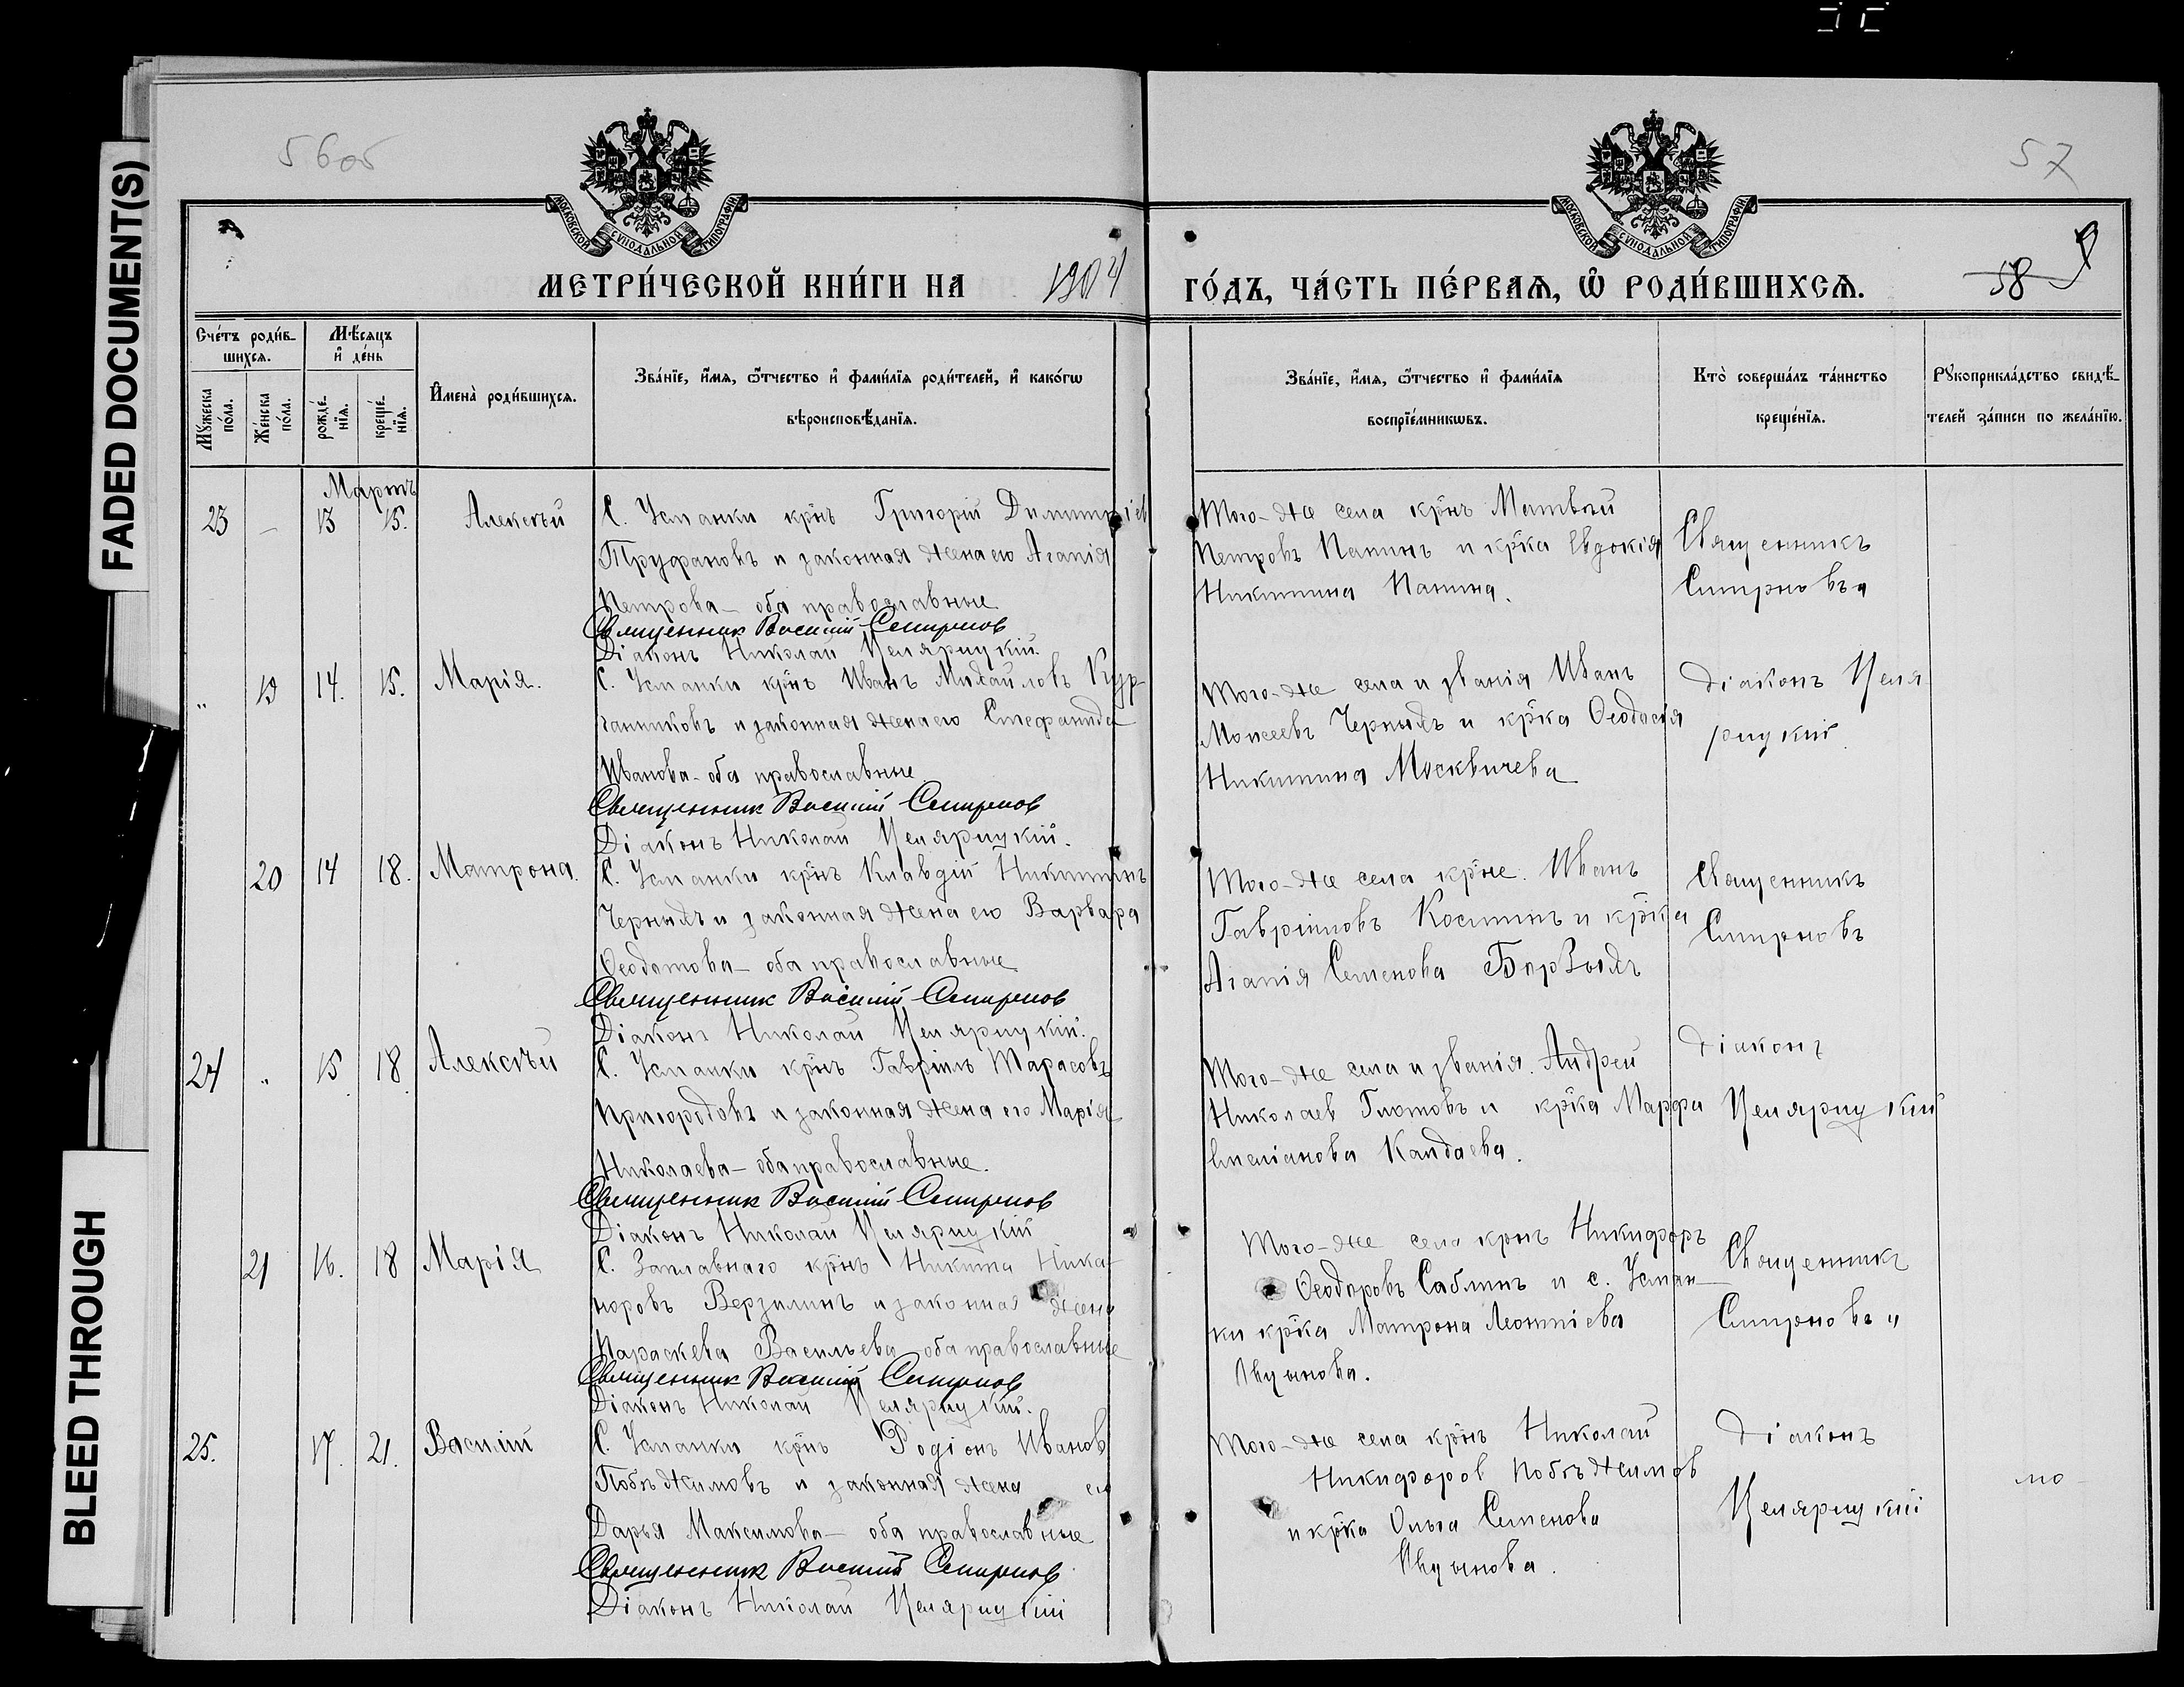 FADED DOCUMENT(S)
BLEED THROUGH
56об
57
МОСКОВСКОЙ СѴНОДАЛЬНОЙ ТИПОГРАФІИ
МОСКОВСКОЙ СѴНОДАЛЬНОЙ ТИПОГРАФІИ
МЕТРИ́ЧЕСКОЙ КНИ́ГИ НА 1904 ГО́ДЪ, ЧА́СТЬ ПЕ́РВАѦ, Ѿ РОДИ́ВШИХСѦ.
58
Сче́тъ роди́в-
шихсѧ.
Мꙋ́жеска по́ла.
Же́нска по́ла.
Мѣ́сяцъ и҆ де́нь
рожде́-нїѧ.
креще́-нїѧ.
И҆мена̀ роди́вшихсѧ.
Зва́нїе, и҆́мѧ, ѻ҆́тчество и҆ фами́лїѧ роди́телей, и҆ како́гѡ
вѣроисповѣ́данїѧ.
Зва́нїе, и҆́мѧ, ѻ҆́тчество и҆ фами́лїѧ
воспрїе́мникѡвъ.
Кто̀ соверша́лъ та́инство
креще́нїѧ.
Рꙋкоприкла́дство свидѣ́-
телей за́писи по жела́нїю.
Мартъ
23 — 13 15. Алексѣй
С. Усманки крнъ Григорій Димитріев
Труфановъ и законная жена его Агапія
Петрова — оба православные
Священник Василий Смирнов
Діаконъ Николай Целярицкій.
Того-же села крнъ Матвѣй
Петровъ Панинъ и крка Евдокія
Никитина Панина.
Священникъ
Смирновъ
" 19 14. 15. Марія.
С. Усманки крнъ Иванъ Михайловъ Кур-
ганниковъ и законная жена его Стефанида
Иванова - оба православные
Священник Василий Смирнов
Діаконъ Николай Целярицкій.
Того-же села и званія Иванъ
Моисеевъ Черныхъ и крка Ѳеодосія
Никитина Москвичева
Діаконъ Целя-
рицкій.
20 14 18. Матрона.
С. Усманки крнъ Клавдій Никитинъ
Черныхъ и законная жена его Варвара
Ѳеодотова — оба православные
Священник Василий Смирнов
Діаконъ Николай Целярицкій.
Того-же села крне. Иванъ
Гавріиловъ Костинъ и крка
Агапія Семенова Борзыхъ
Священникъ
Смирновъ
24 " 15 18. Алексѣй
С. Усманки крнъ Гавріилъ Тарасовъ
Пригородовъ и законная жена его Марія
Николаева — оба православные.
Священник Василий Смирнов
Діаконъ Николай Целярицкій
Того-же села и званія. Андрей
Николаев Глотовъ и крка Марфа
Емеліанова Кандаева.
Діаконъ
Целярицкій
21 16. 18 Марія
С. Заплавнаго крнъ Никита Ника-
норовъ Верзилинъ и законная жена
Параскева Васильева оба православные
Священник Василий Смирнов
Діаконъ Николай Целярицкій.
Того-же села крнъ Никифоръ
Ѳеодоровъ Саблинъ и с. Усман-
ки крка Матрона Леонтіева
Священникъ
Смирновъ "
25. 17. 21. Василій
С. Усманки крнъ Родіонъ Иванов
Побѣжимовъ и законная жена его
Дарья Максимова — оба православные
Священник Василий Смирнов
Діаконъ Николай Целярицкій
Того-же села крнъ Николай
Никифоров Побѣжимов
и крка Ольга Семенова
Діаконъ
Целярицкій